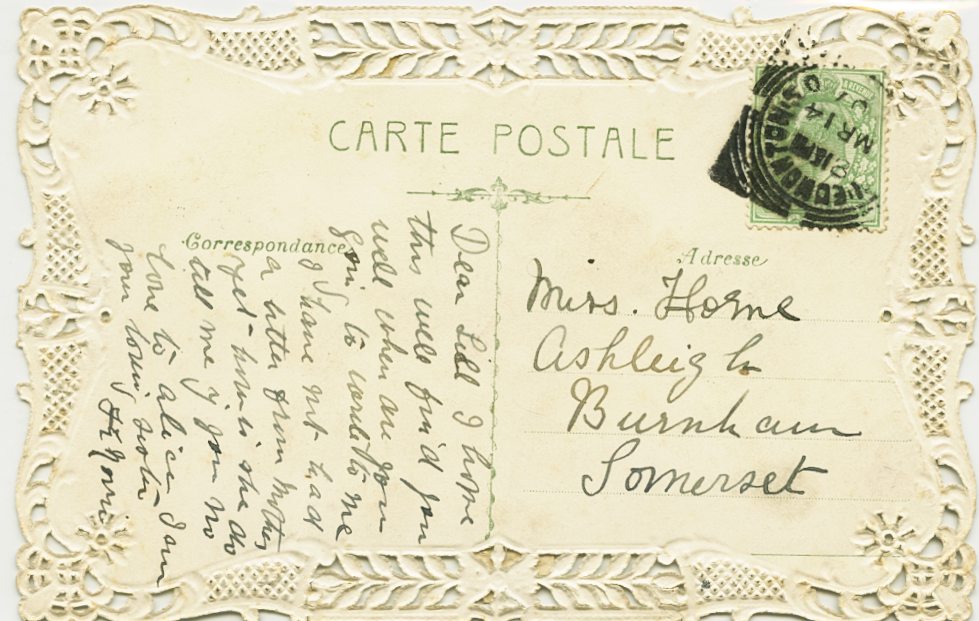 CARTE POSTALE
Correspondance
Adresse
Dear Lill I hope
this will find you
well when are you
goin to write to me
I have not had
a letter from Mother
yet how is she do
tell me if you no
love to alice I am
your loving sister
Miss. Horne
Ashleigh
Burnham
Somerset
MR 14
07